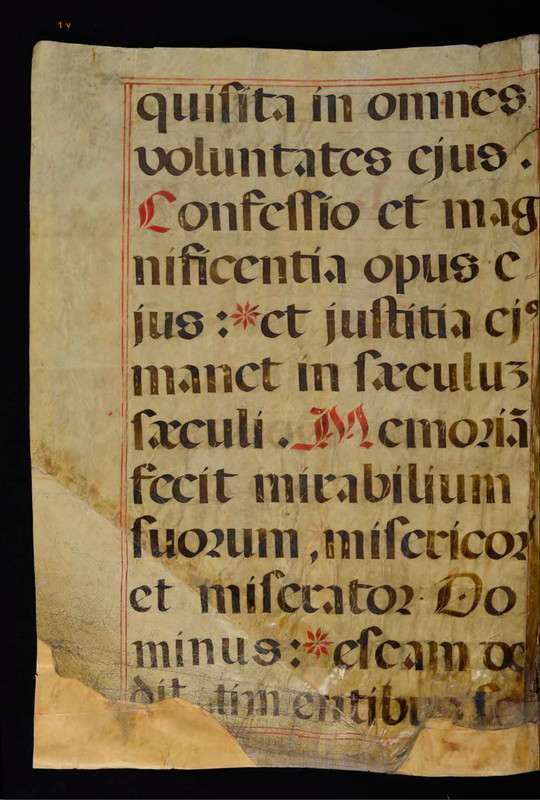 1 v
quiſita in omnes
voluntates ejus .
Confeſſio et mag
nificentia opus e
jus :* et juſtitia ejꝰ
manet in ſæculuʒ
ſæculi . Memoriā
fecit mirabilium
ſuoꝛum , miſericoꝛ
et miſeratoꝛ Do
minus :* eſcam de
dit timentibus ſe